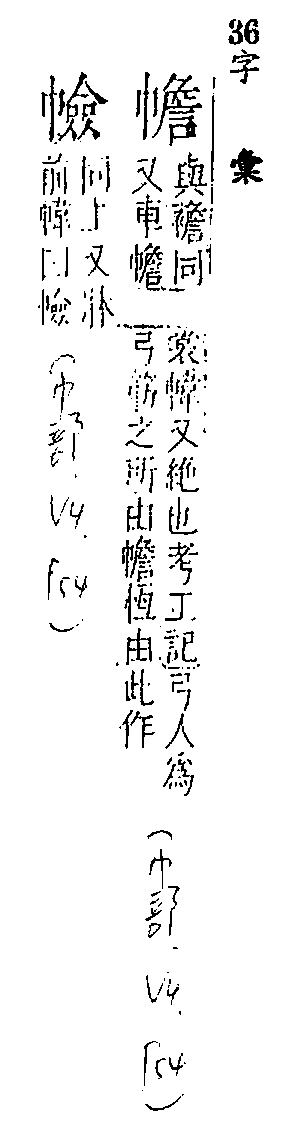 36
字彙
幨 與襜同
又車幨
裳幃又絶也考工記弓人爲
弓筋之所由幨恆由此作
(巾部. V4. f54)
憸 同上又牀
前幃曰憸
(巾部. V4. f54)